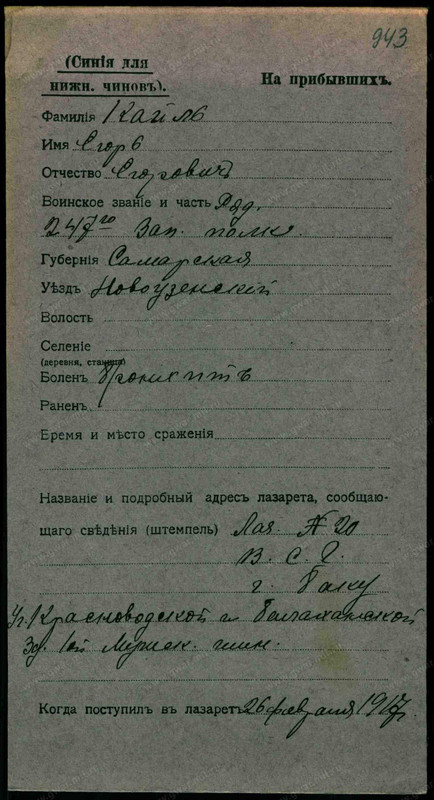 943
(Синія для
нижн. чиновъ).
На прибывшихъ.
Фамилія Кайль
Имя Егоръ
Отчество Егоровичъ
Воинское званіе и часть Ряд.
247го Зап. полка.
Губернія Самарская
Уѣздъ Новоузенскій
Волость
Селеніе
(деревня, станица)
Боленъ Бронхитъ
Раненъ
Время и мѣсто сраженія
Названіе и подробный адресъ лазарета, сообщаю-
щаго свѣдѣнія (штемпель) Лаз. № 20
В. С. Г.
г. Баку
Уг. Красноводской и Балаханской
Зд. 1ой Мужск. гимн.
Когда поступилъ въ лазаретъ 26 февраля 1917г.